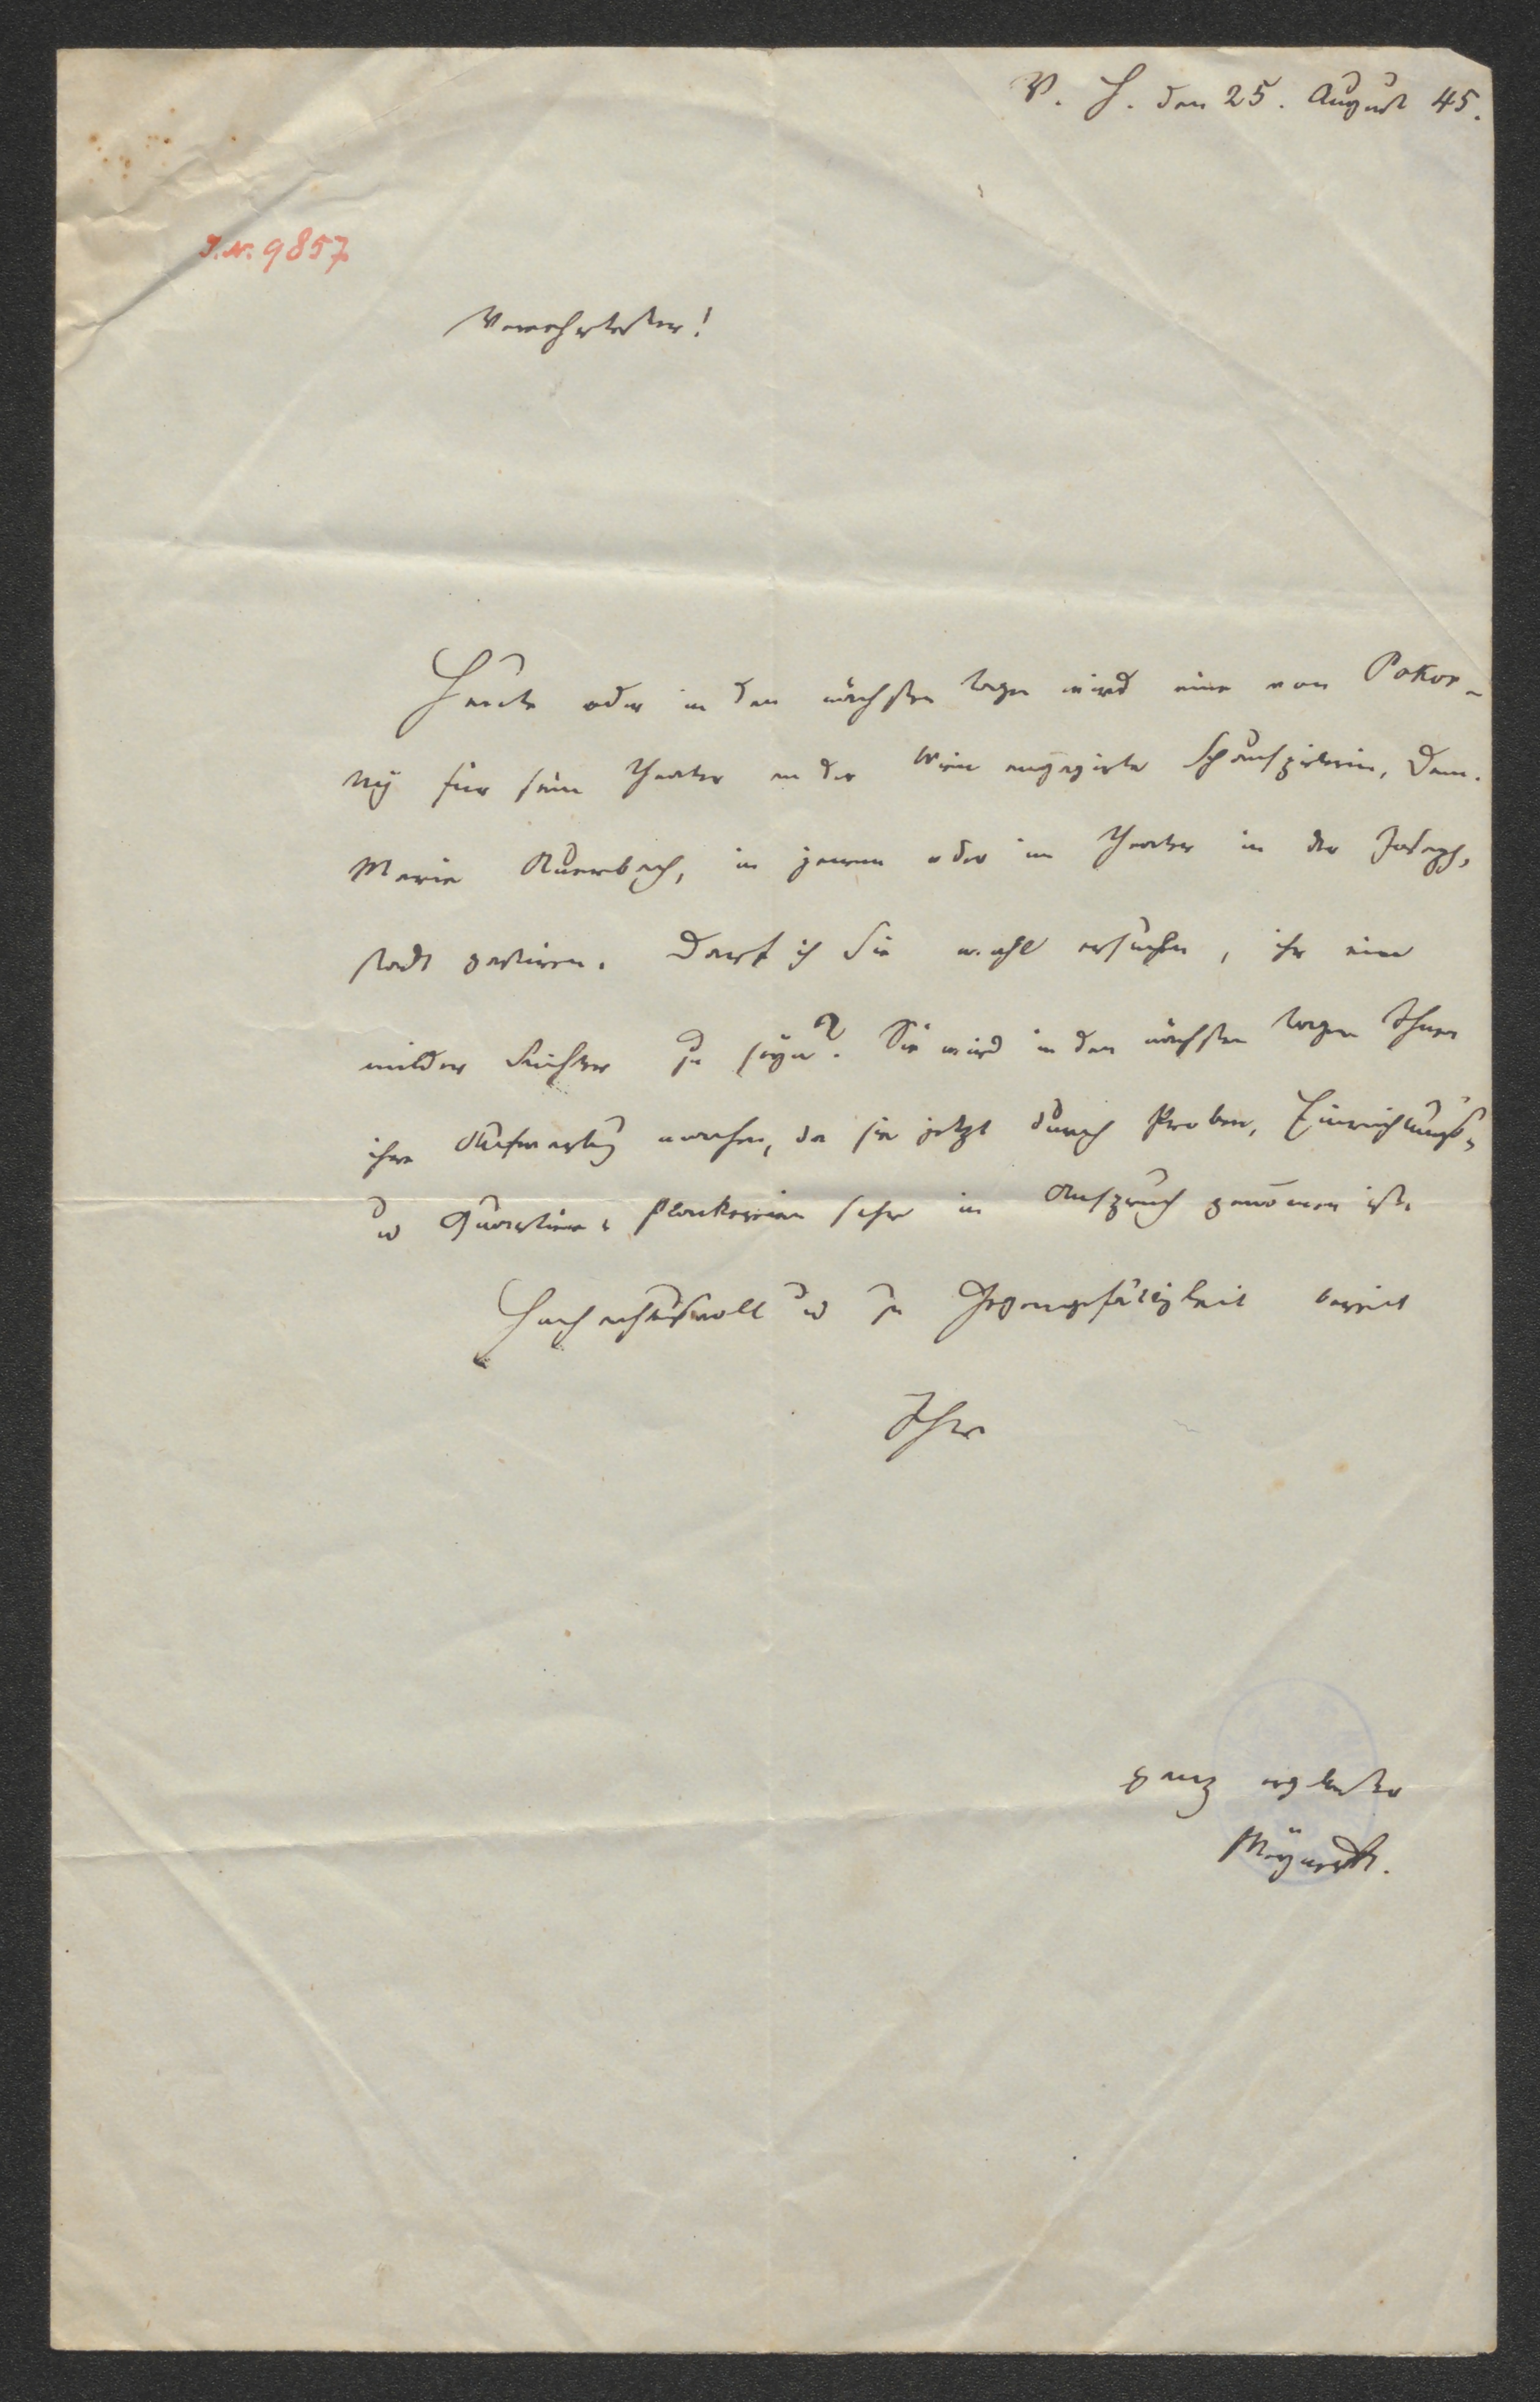 V. H. den 25. August 45.
I.N. 9857
Verehrtester!
Heute oder in den nächsten Tagen wird eine von Pokor-
ny für sein Theater an der Wien engagirte Schauspielerin, Dem.
Marie Auerbach, in jenem oder im Theater in der Joseph-
stadt gastiren. Darf ich Sie wohl ersuchen, ihr ein
milder Richter zu seyn? Sie wird in den nächsten Tagen Ihnen
ihre Aufwartung machen, da sie jetzt durch Proben, Einrichtungs-
u Quartier-Plackereien sehr in Anspruch genom̄en ist.
Hochachtungsvoll u zu Gegengefälligkeit bereit
Ihr
ganz ergebenster